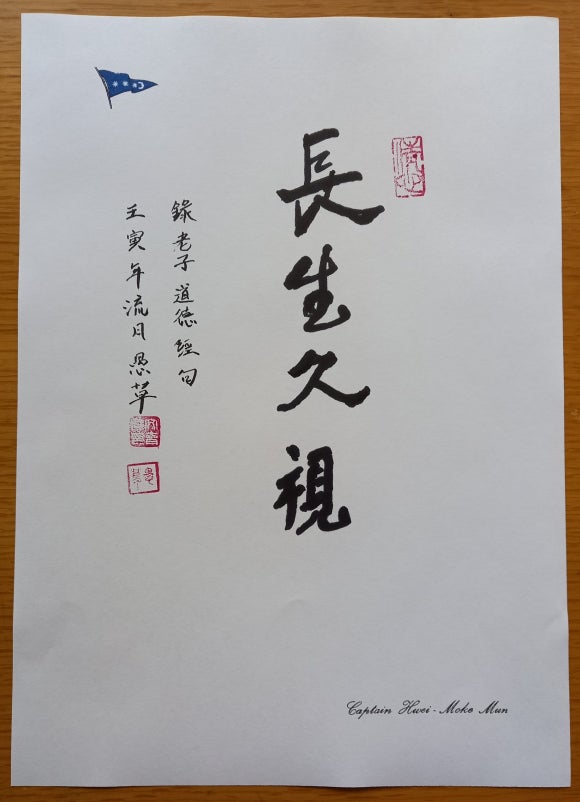 長生久視
錄老子道德經句
壬寅年流月愚草
Captain Hwei-Moke Mun